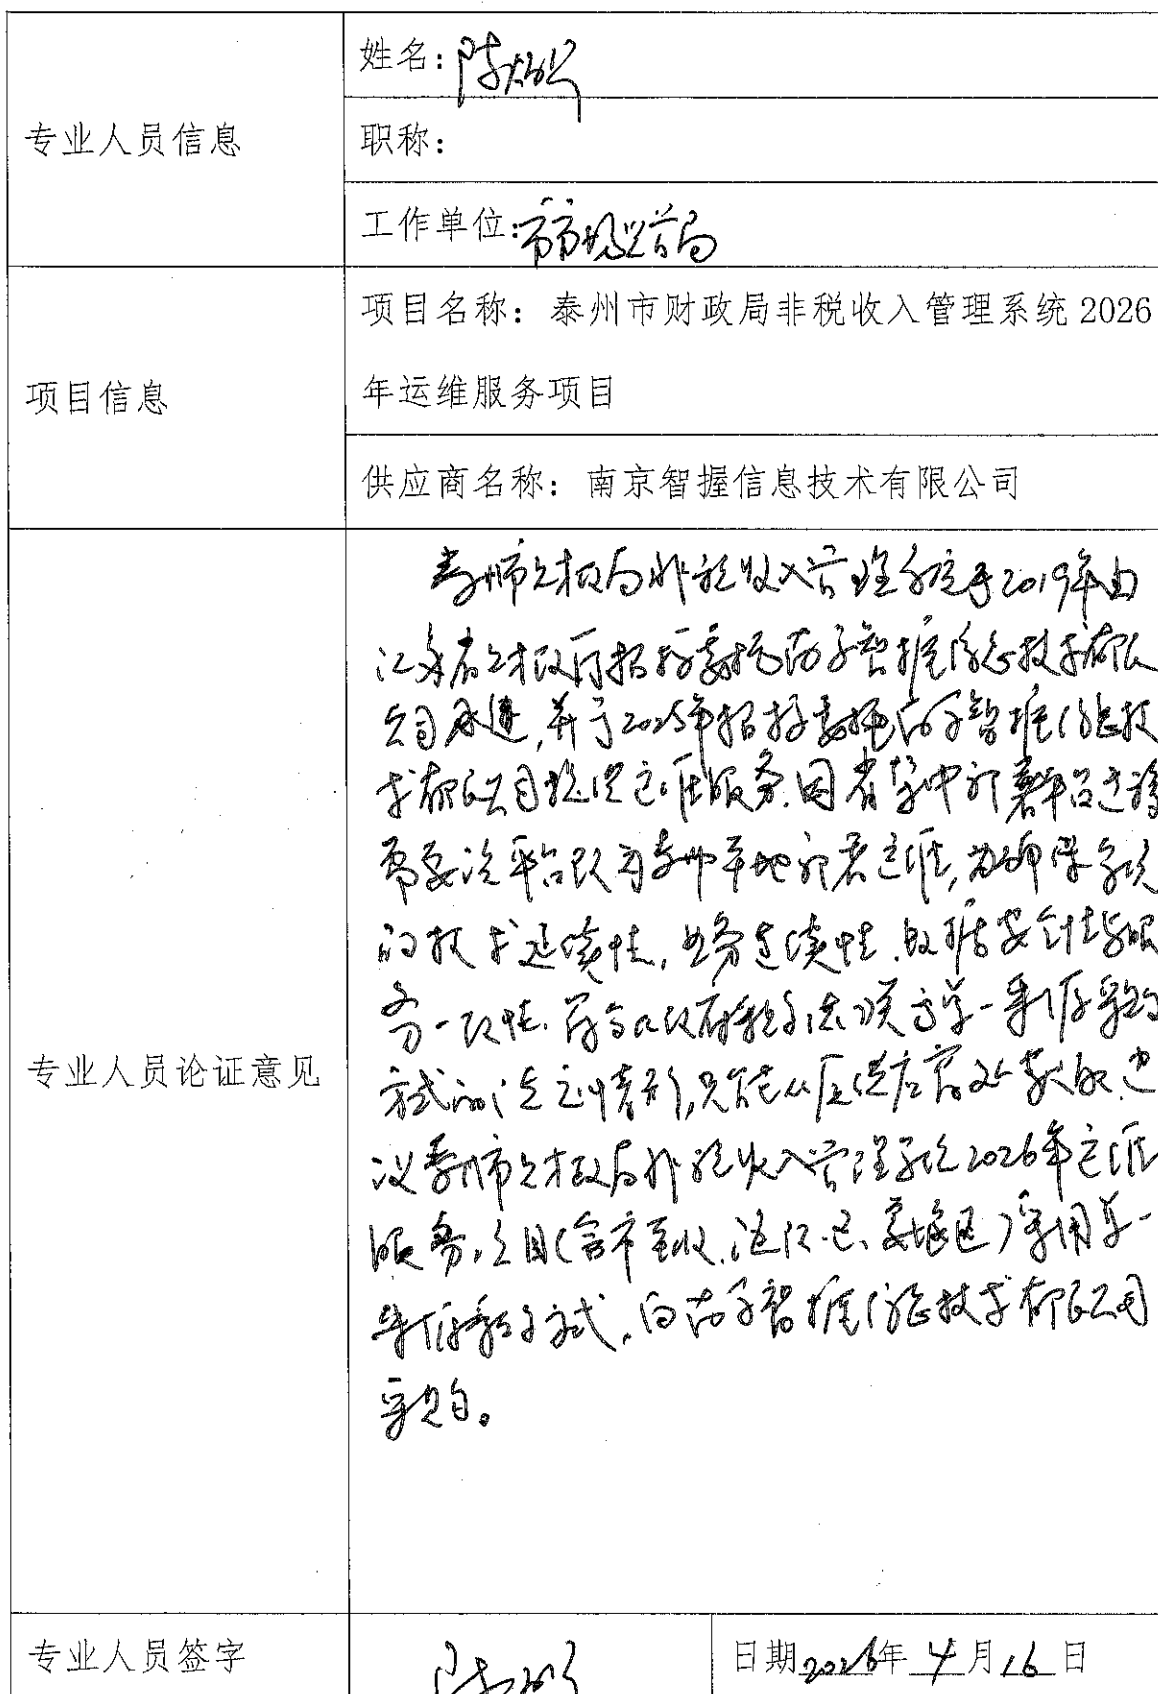 专业人员信息
姓名：陈
职称：
工作单位：市市场监管局
项目信息
项目名称：泰州市财政局非税收入管理系统 2026
年运维服务项目
供应商名称：南京智握信息技术有限公司
专业人员论证意见
泰州市财政局非税收入管理系统于2019年由
江苏省财政厅招标委托南京智握信息技术有限
公司承建，并于2025年招标委托南京智握信息技
术有限公司提供运维服务。因省集中部署平台迁移
需要，平台改为泰州本地部署运维，为确保系统
的技术延续性，业务连续性、数据安全性与服
务一致性。符合政府采购法规单一来源采购
方式的法定情形，只能从原供应商处采购。建
议泰州市财政局非税收入管理系统2026年运维
服务项目（含市直、海陵区、姜堰区）采用单一
来源采购方式，向南京智握信息技术有限公司
采购。
专业人员签字
陈
日期 2026年 4月16日